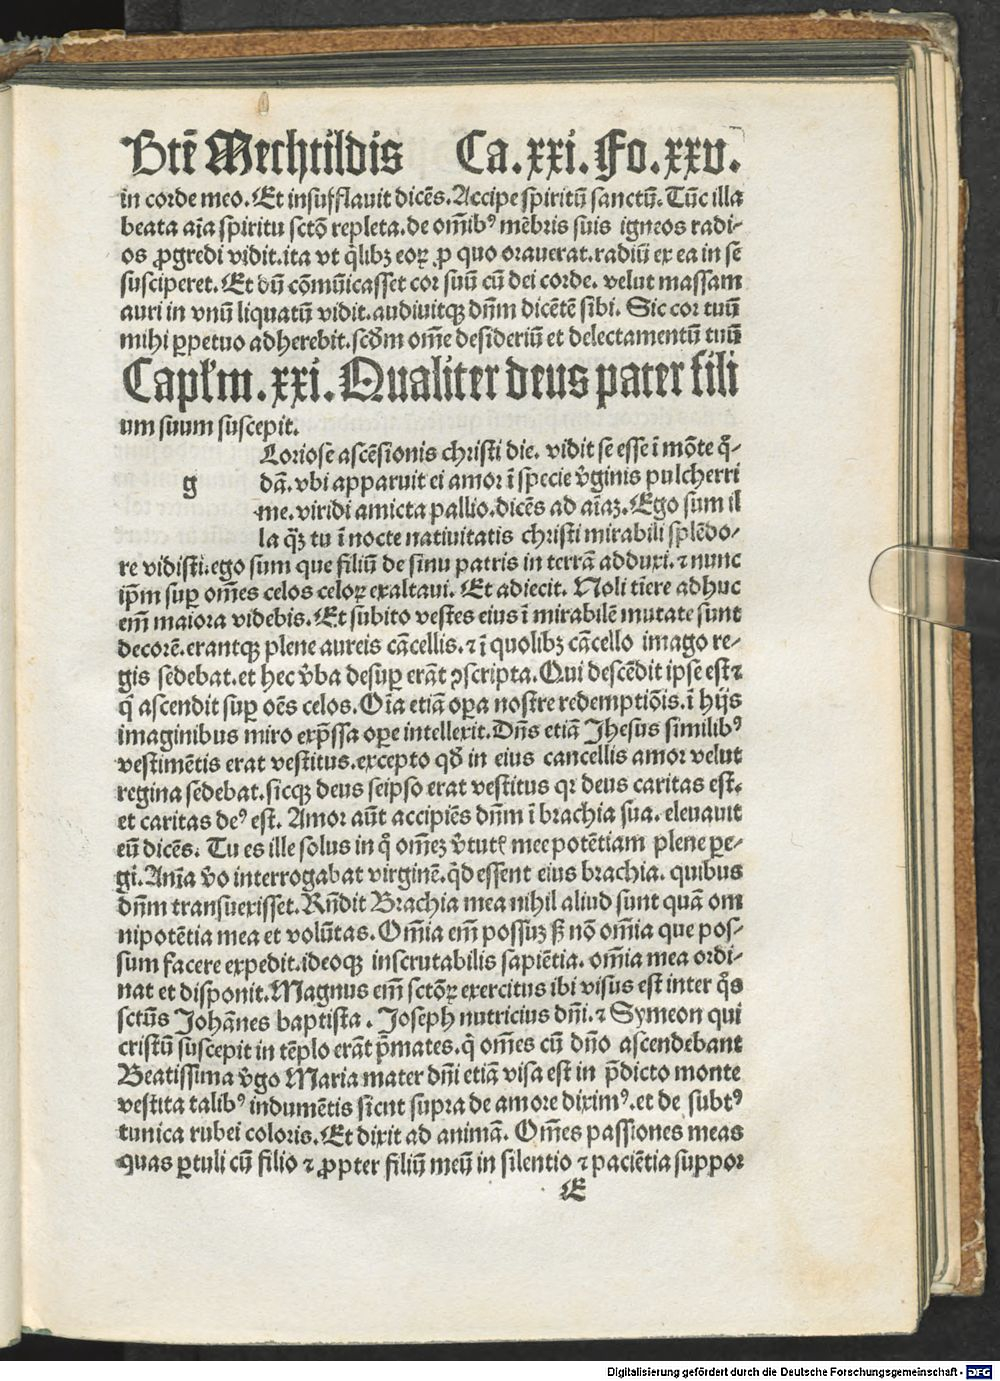 Btē Mechtildis Ca.xxi.Fo.xxv.
in corde meo. Et insufflauit dicēs. Accipe spiritū sanctū. Tūc illa
beata aīa spiritu sctō repleta. de om̄ibꝰ mēbris suis igneos radi-
os ꝓgredi vidit. ita vt q̄libꝫ eoꝝ ꝓ quo orauerat. radiū ex ea in se
susciperet. Et dū cōmūicasset cor suū cū dei corde. velut massam
auri in vnū liquatū vidit. audiuitqꝫ dn̄m dicētē sibi. Sic cor tuū
mihi ꝑpetuo adherebit. scd̄m om̄e desideriū et delectamentū tuū
Capl'm.xxi. Qualiter deus pater fili
um suum suscepit.
Loriose ascēsionis christi die. vidit se esse ī mōte q̄-
g dā. vbi apparuit ei amor ī specie v̄ginis pulcherri
me. viridi amicta pallio. dicēs ad aīaꝫ. Ego sum il
la q̄ꝫ tu ī nocte natiuitatis christi mirabili splēdo-
re vidisti. ego sum que filiū de sinu patris in terrā adduxi. ⁊ nunc
ip̄m suꝑ om̄es celos celoꝝ exaltaui. Et adiecit. Noli tīere adhuc
em̄ maiora videbis. Et subito vestes eius ī mirabilē mutate sunt
decorē. erantqꝫ plene aureis cācellis. ⁊ ī quolibꝫ cācello imago re-
gis sedebat. et hec v̄ba desuꝑ erāt ꝯscripta. Qui descēdit ipse est ⁊
q̄ ascendit suꝑ oēs celos. Oīa etiā oꝑa nostre redemptiōis. ī hijs
imaginibus miro exp̄ssa oꝑe intellexit. Dn̄s etiā Jhesus similibꝰ
vestimētis erat vestitus. excepto qd̄ in eius cancellis amor velut
regina sedebat. sicqꝫ deus seipso erat vestitus qꝛ deus caritas est.
et caritas deꝰ est. Amor aūt accipiēs dn̄m ī brachia sua. eleuauit
eū dicēs. Tu es ille solus in q̊ om̄eꝫ v̄tutꝭ mee potētiam plene ꝑe-
gi. Anīa v̄o interrogabat virginē. q̄d essent eius brachia. quibus
dn̄m transuexisset. Rn̄dit Brachia mea nihil aliud sunt quā om
nipotētia mea et volūtas. Om̄ia em̄ possuꝫ ſꝫ nō om̄ia que pos-
sum facere expedit. ideoqꝫ inscrutabilis sapiētia. om̄ia mea ordi-
nat et disponit. Magnus em̄ sctōꝝ exercitus ibi visus est inter q̊s
sctūs Johānes baptista. Joseph nutricius dn̄i. ⁊ Symeon qui
cristū suscepit in tēplo erāt p̄mates. q̄ om̄es cū dn̄o ascendebant
Beatissima v̄go Maria mater dn̄i etiā visa est in p̄dicto monte
vestita talibꝰ indumētis sicut supra de amore diximꝰ. et de subtꝰ
tunica rubei coloris. Et dixit ad animā. Om̄es passiones meas
quas ꝑtuli cū filio ⁊ ꝓpter filiū meū in silentio ⁊ paciētia suppor
E
Digitalisierung gefördert durch die Deutsche Forschungsgemeinschaft - DFG